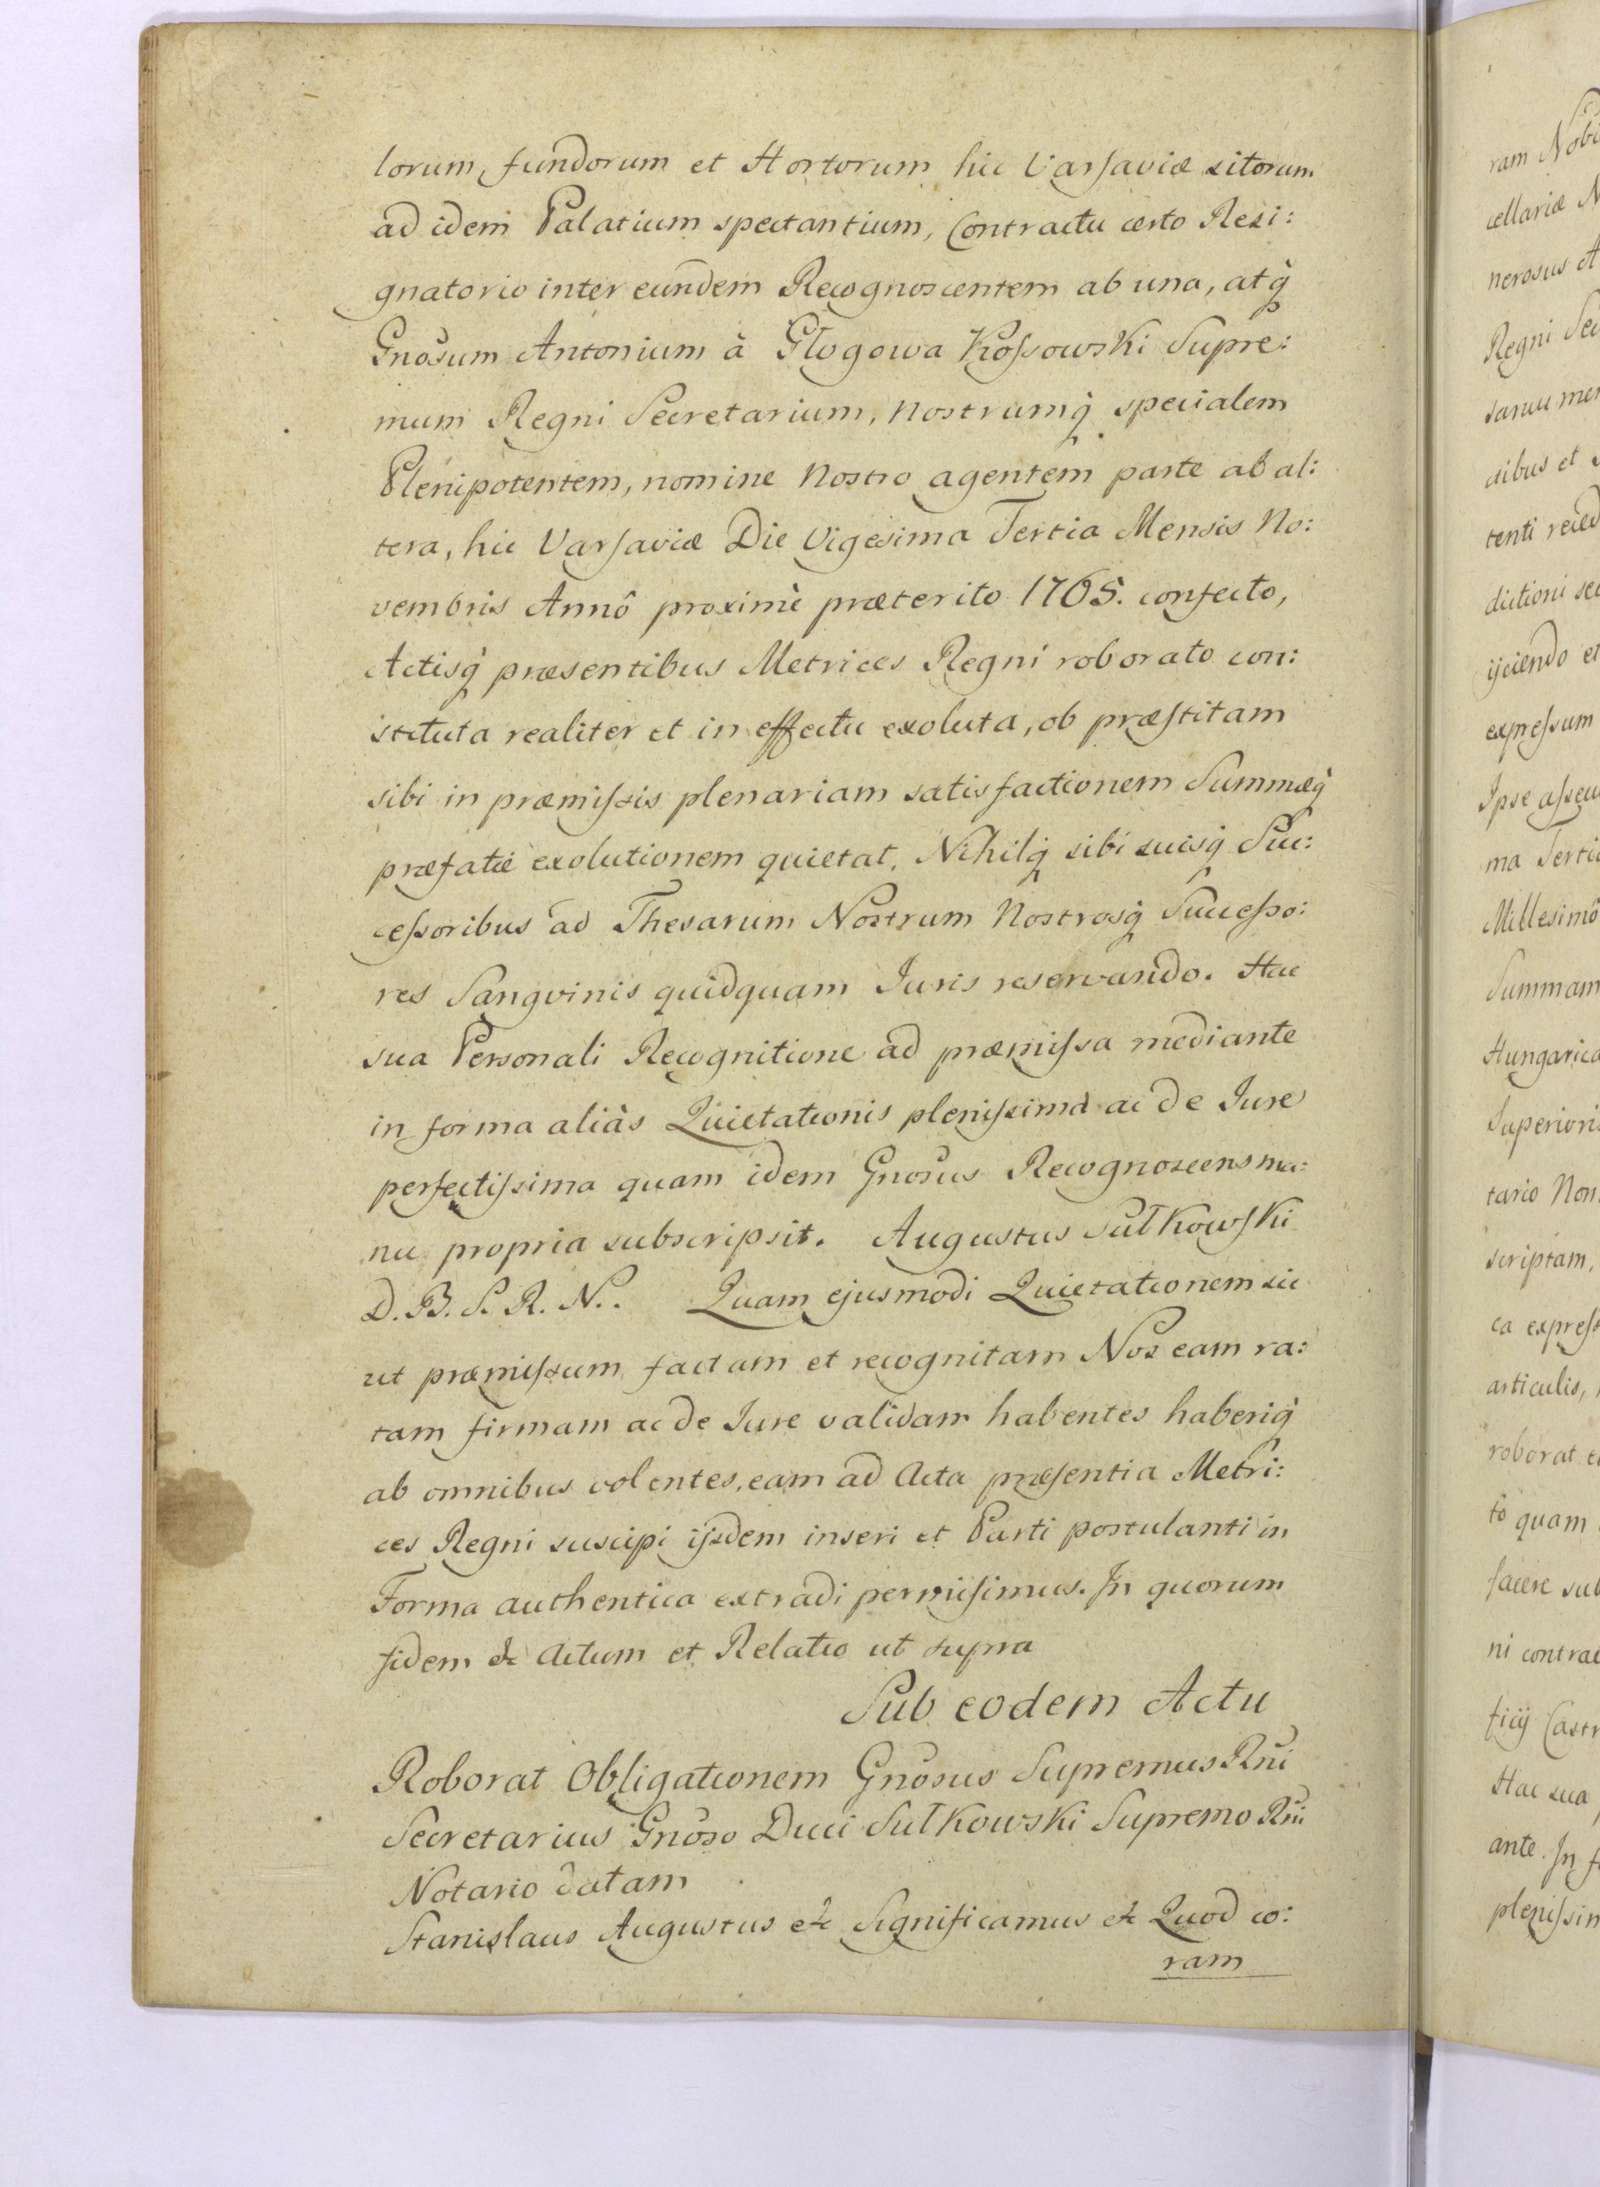 lorum, fundorum et Hortorum hic Varsaviæ sitorum
ad idem Palatium spectantium, Contractu certo Resi:
gnatorio inter eundem Recognoscentem ab una, atq̀
Gnōsum Antonium à Głogowa Kossowski Supre:
mum Regni Secretarium, Nostrumq̀ specialem
Plenipotentem, nomine Nostro agentem parte ab al:
tera, hic Varsaviæ Die Vigesima Tertia Mensis No:
vembris Annô proximè præterito 1765. confecto,
Actisq̀ præsentibus Metrices Regni roborato con:
stituta realiter et in effectu exoluta, ob præstitam
sibi in præmissis plenariam satisfactionem Summæq̀
præfatæ exolutionem quietat, Nihilq̀ sibi suisq̀ Suc:
cessoribus ad Thesarum Nostrum Nostrosq̀ Successo:
res Sangvinis quidquam Iuris reservando. Hac
sua Personali Recognitione ad præmissa mediante
in forma aliàs Quietationis plenissima ac de Iure
perfectissima quam idem Gnōsus Recognoscens ma:
nu propria subscripsit. Augustus Sułkowski
D. B. S. R. N.. Quam ejusmodi Quietationem sic
ut præmissum factam et recognitam Nos eam ra:
tam firmam ac de Iure validam habentes haberiq̀
ab omnibus volentes, eam ad Acta præsentia Metri:
ces Regni suscipi ijsdem inseri et Parti postulanti in
Forma authentica extradi permisimus. In quorum
fidem &c Actum et Relatio ut supra
Sub eodem Actu
Roborat Obligationem Gnōsus Supremus Rni
Secretarius Gnōso Duci Sułkowski Supremo Rni
Notario datam
Stanislaus Augustus &c Significamus &c Quod co:
ram
ram Nobi
cellariæ N
nerosus A
Regni Sec
dibus et
tenti reced
dictioni sec
ijciendo et
expressum
Ipse assecu
ma Tertia
Millesimô
Summam
Hungarica
Superioris
tario Non
scriptam,
ca expres
articulis,
roborat e
to quam
facere sub
ni contrac
ficij Castr
Hac sua
ante. In f
plenissim